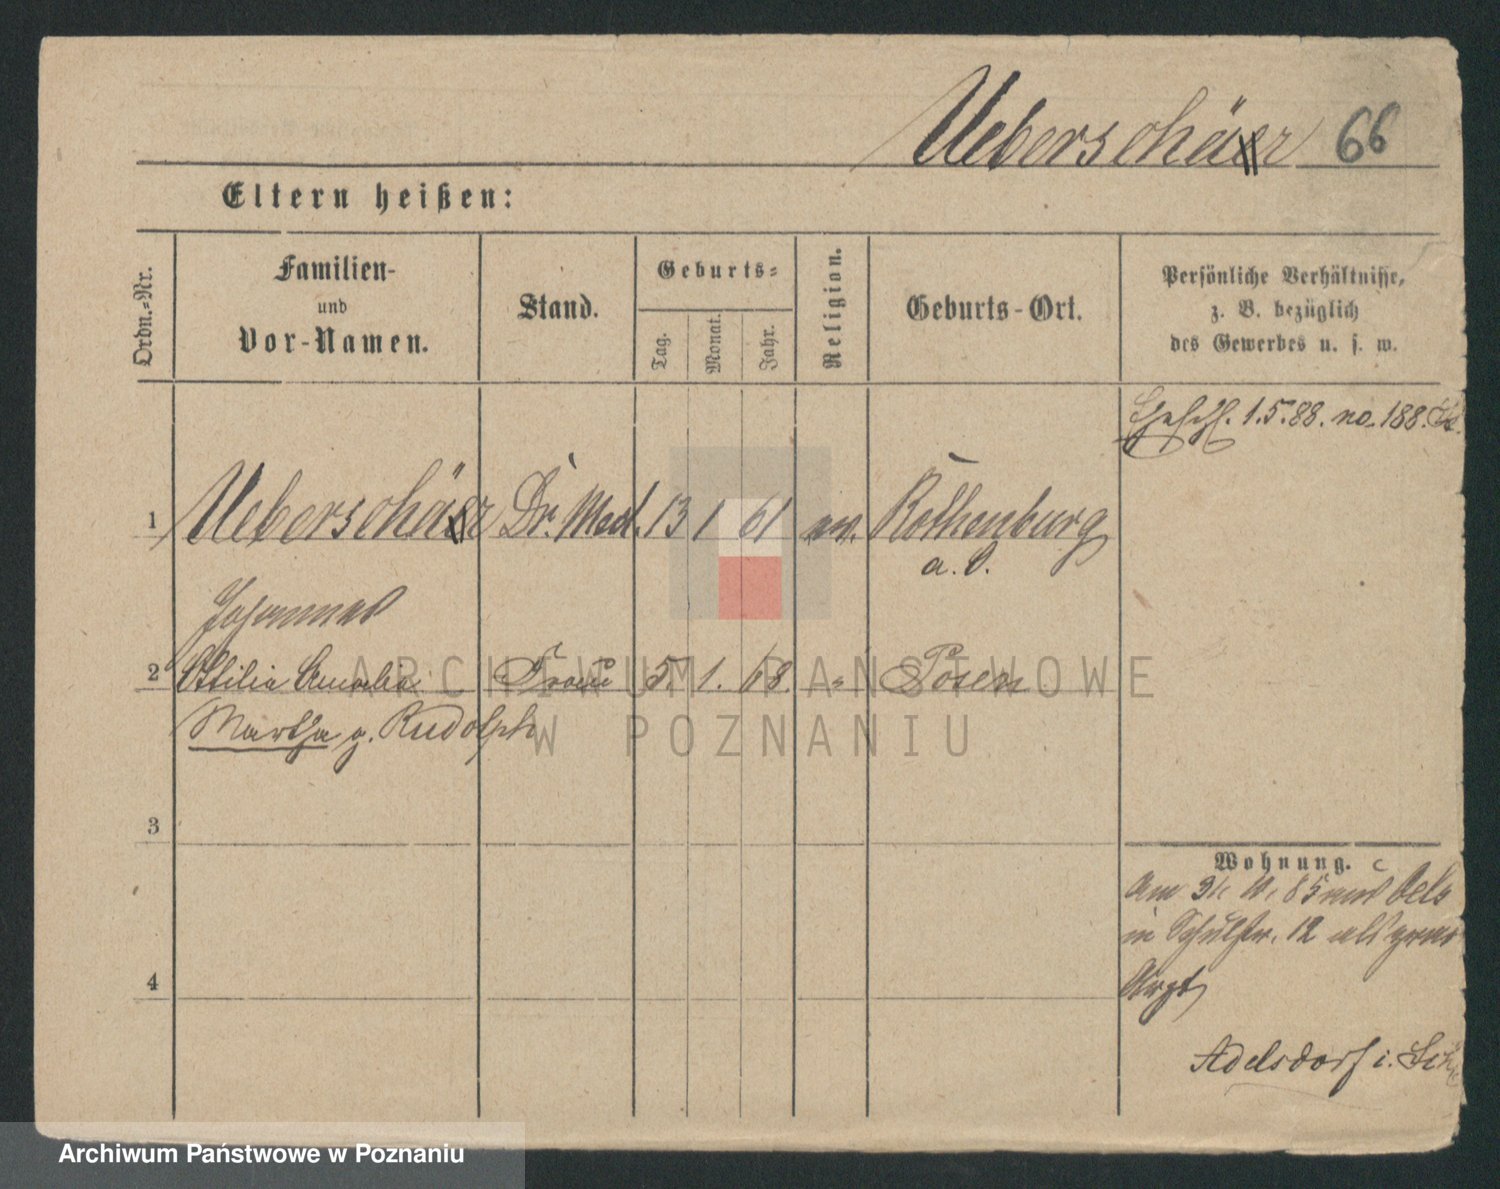 Ueberschär 66
Eltern heißen:
Ordn.-Nr.
Familien-
und
Vor-Namen.
Stand.
Geburts-
Tag.
Monat.
Jahr.
Religion.
Geburts-Ort.
Persönliche Verhältnisse,
z. B. bezüglich
des Gewerbes u. s. w.
1.5.88. no. 188.
1 Ueberschär Dr. Med. 13 1 61 ev. Rothenburg
a. O.
Johannes
2 Ottilie Amalie Frau 5. 1. 68. " Posen
Martha g. Rudolph
3
4
Wohnung.
Am 3/. 10. 85 aus Oels
in Schulstr. 12 als
Arzt
Adelsdorf i. Schl
ARCHIWUM PAŃSTWOWE
W POZNANIU
Archiwum Państwowe w Poznaniu